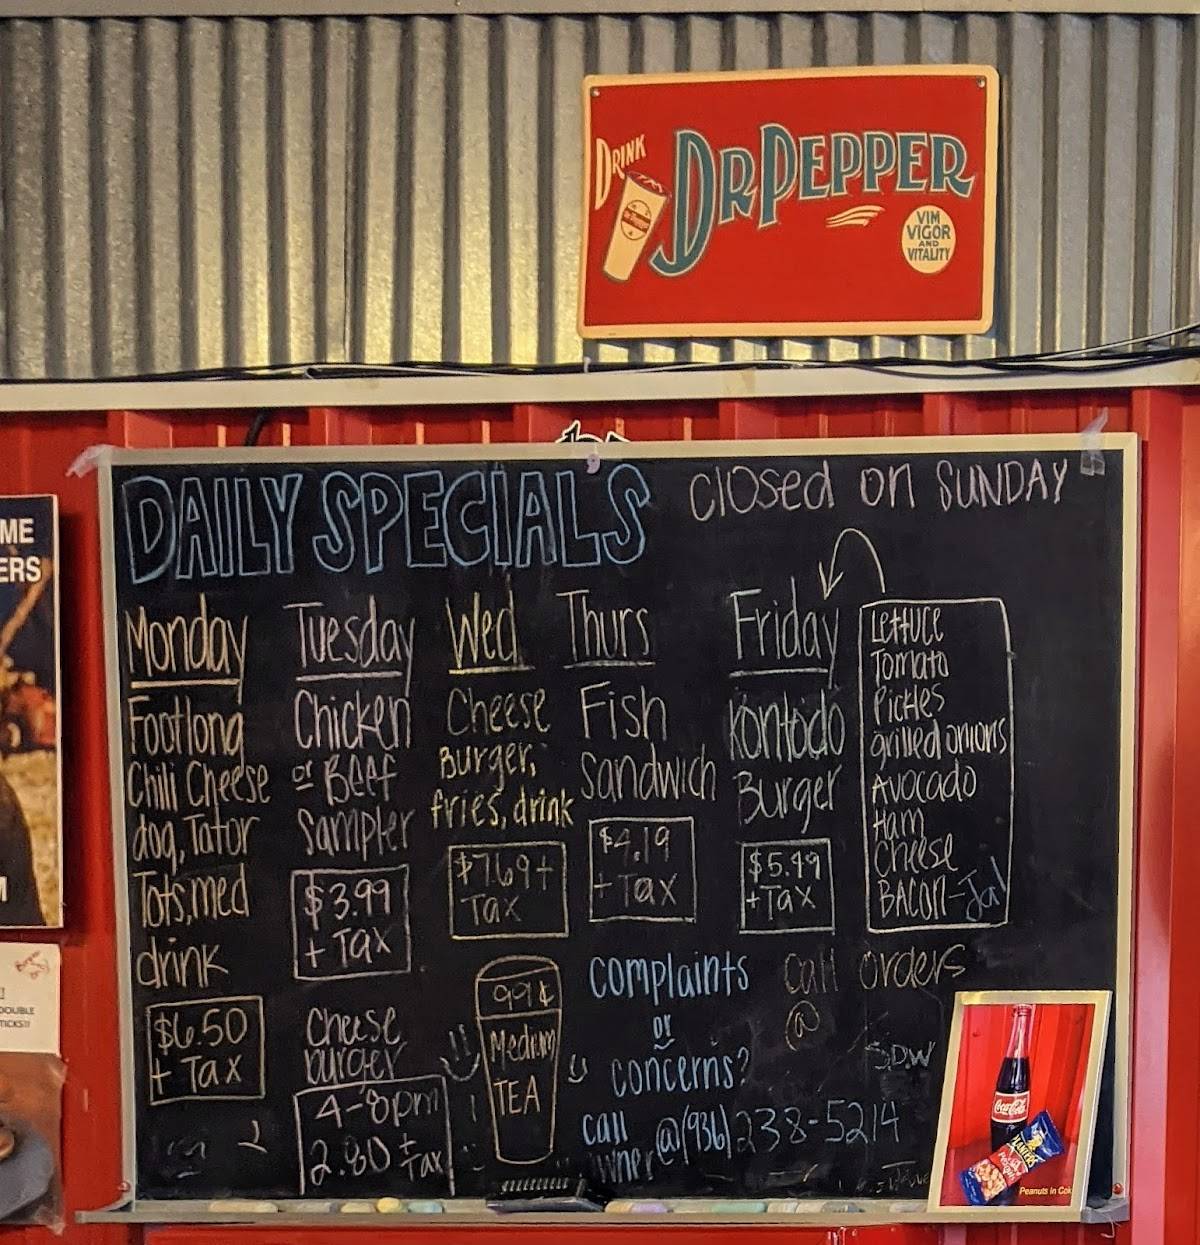 DRINK
DR PEPPER
VIM
VIGOR
AND
VITALITY
ME
ERS
M
DOUBLE
TICKS!!
DAILY SPECIALS
Closed on SUNDAY
Monday
Footlong
Chili Cheese
dog, Tator
Tots, med
drink
$6.50
+ Tax
Tuesday
Chicken
or Beef
Sampler
$3.99
+ Tax
Cheese
burger
4-8pm
2.80 +
Tax
Wed
Cheese
Burger,
fries, drink
$7.69 +
Tax
99¢
Medium
TEA
Thurs
Fish
Sandwich
$4.19
+ Tax
Friday
Kontodo
Burger
$5.49
+ Tax
Lettuce
Tomato
Pickles
grilled onions
Avocado
Ham
Cheese
BACON-Jal
complaints
or
concerns?
call
owner @ (936) 238-5214
Call orders
@
Coca-Cola
PLANTERS
Peanuts in Cok